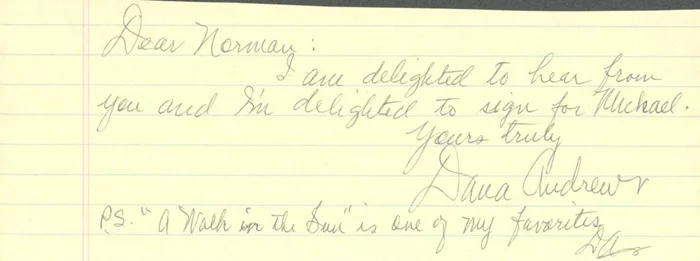 Dear Norman:
I am delighted to hear from
you and I'm delighted to sign for Michael.
Yours truly
Dana Andrews
P.S. "A Walk in the Sun" is one of my favorites
DA